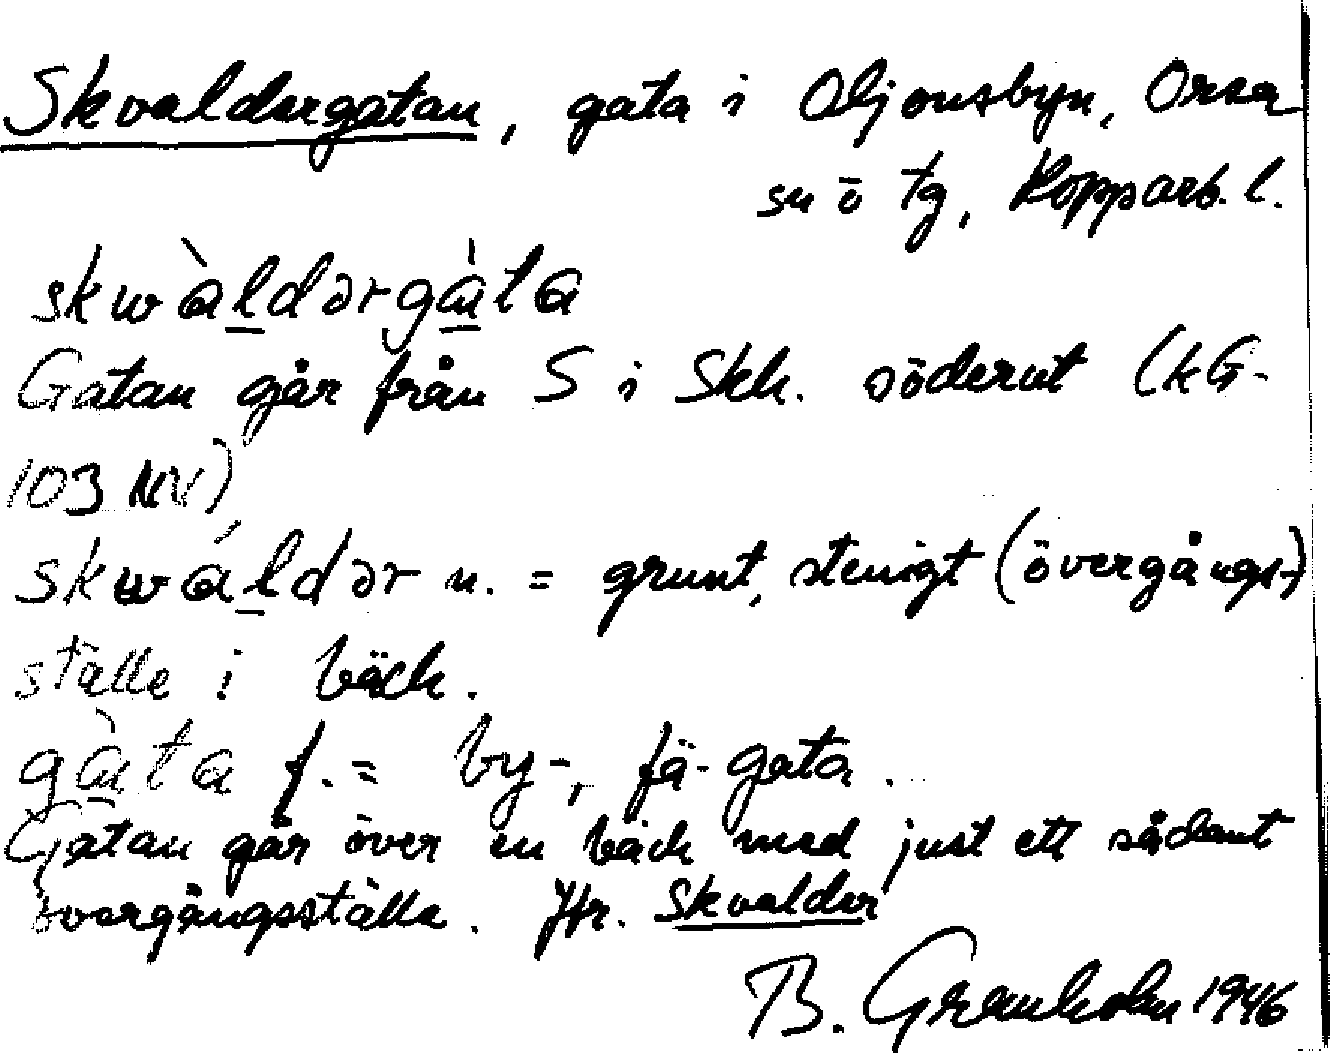 Skvaldergatan, gata i Oljonsbyn, Orsa
sn ö tg, Kopparb. l.
skwàldərgàta
Gatan går från S i Skh. söderut (kG-
103 NV)
skwáldər n. = grunt, stenigt (övergångs-)
ställe i bäck.
gàta f. = by-, fä-gata.
Gatan går över en bäck med just ett sådant
övergångsställe. Jfr. Skvalder
B. Granholm 1946